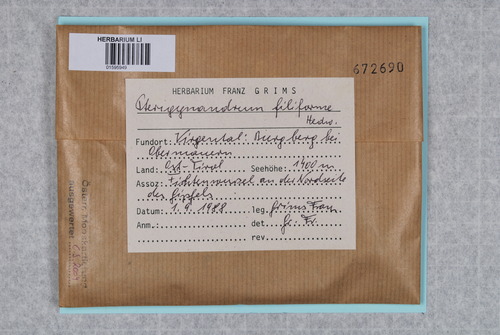 HERBARIUM LI
01595949
672690
HERBARIUM FRANZ GRIMS
Pterigynandrum filiforme
Hedw.
Fundort: Virgental: Burgberg bei
Obermauern
Land: Ost-Tirol Seehöhe: 1400 m
Assoz: Fichtenwurzel an der Nordseite
des Gipfels
Datum: 1.9.1988 leg. Grims Franz
Anm.: det. Gr. Fr.
rev.
ausgewertet